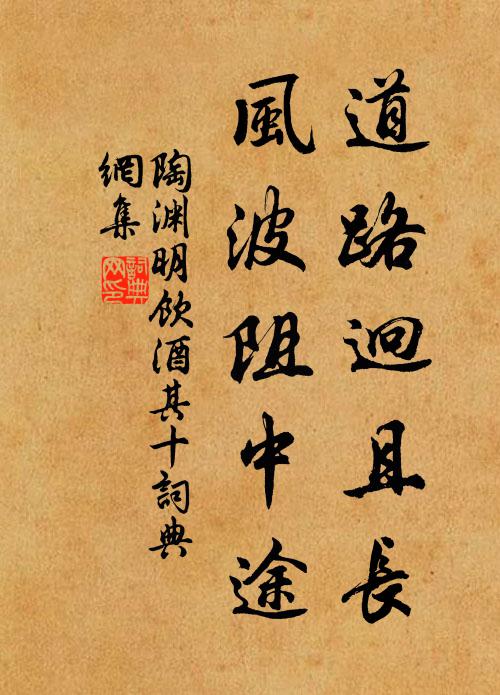 道路迥且長
風波阻中途
陶渊明飲酒其十詞典
網集
詞典
网印